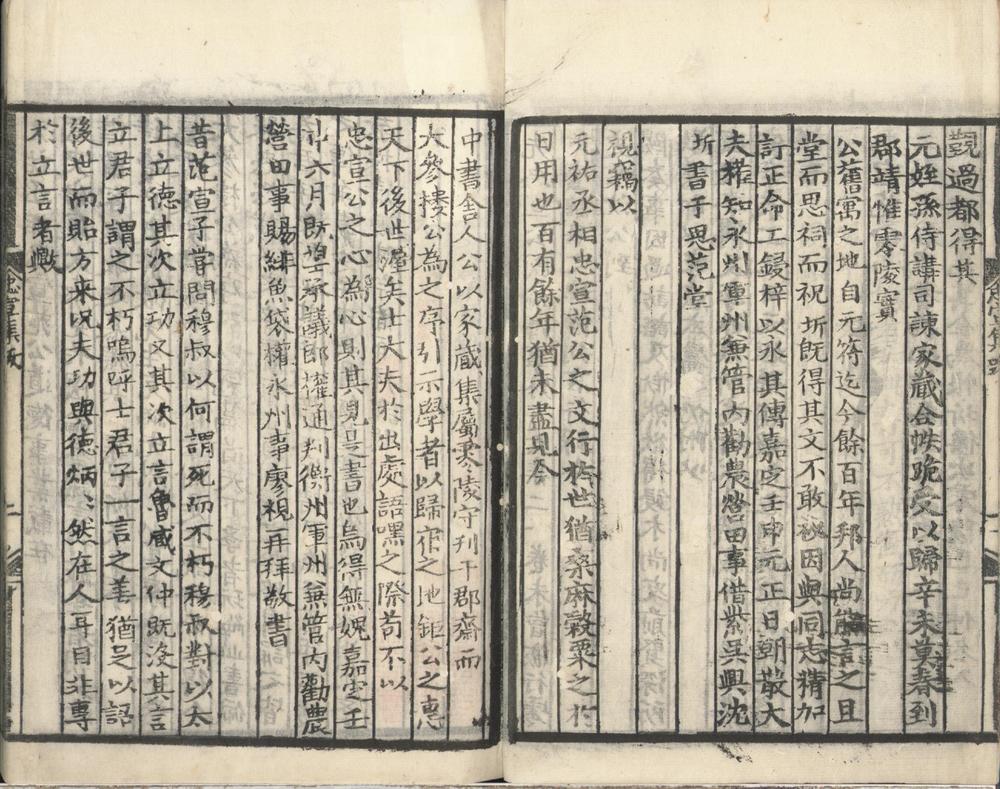 覲過都得其
元姪孫侍講司諫家藏合帙跪受以歸辛未莫春到
郡靖惟零陵實
公舊寓之地自元符迄今餘百年邦人尚能言之且
堂而思祠而祝圻旣得其文不敢祕因與同志精加
訂正命工鋟梓以永其傳嘉定壬申元正日朝散大
夫權知永州軍州無管內勸農營田事借紫吳興沈
圻書于思范堂
視竊以
元祐丞相忠宣范公之文行於世猶桑麻穀粟之於
日用也百有餘年猶未盡見今
中書舍人公以家藏集屬零陵守刋于郡齋而
大參樓公為之序引示學者以歸依之地鉅公之惠
天下後世渥矣士大夫於出處語嘿之際苟不以
忠宣公之心為心則其見是書也烏得無媿嘉定壬
申六月旣望承議郎權通判衡州軍州兼管內勸農
營田事賜緋魚袋權永州事廖視再拜敬書
昔范宣子嘗問穆叔以何謂死而不朽穆叔對以太
上立德其次立功又其次立言魯臧文仲旣沒其言
立君子謂之不朽嗚呼士君子一言之善猶足以詔
後世而貽方来况夫功與德炳〻然在人耳目非專
於立言者歟